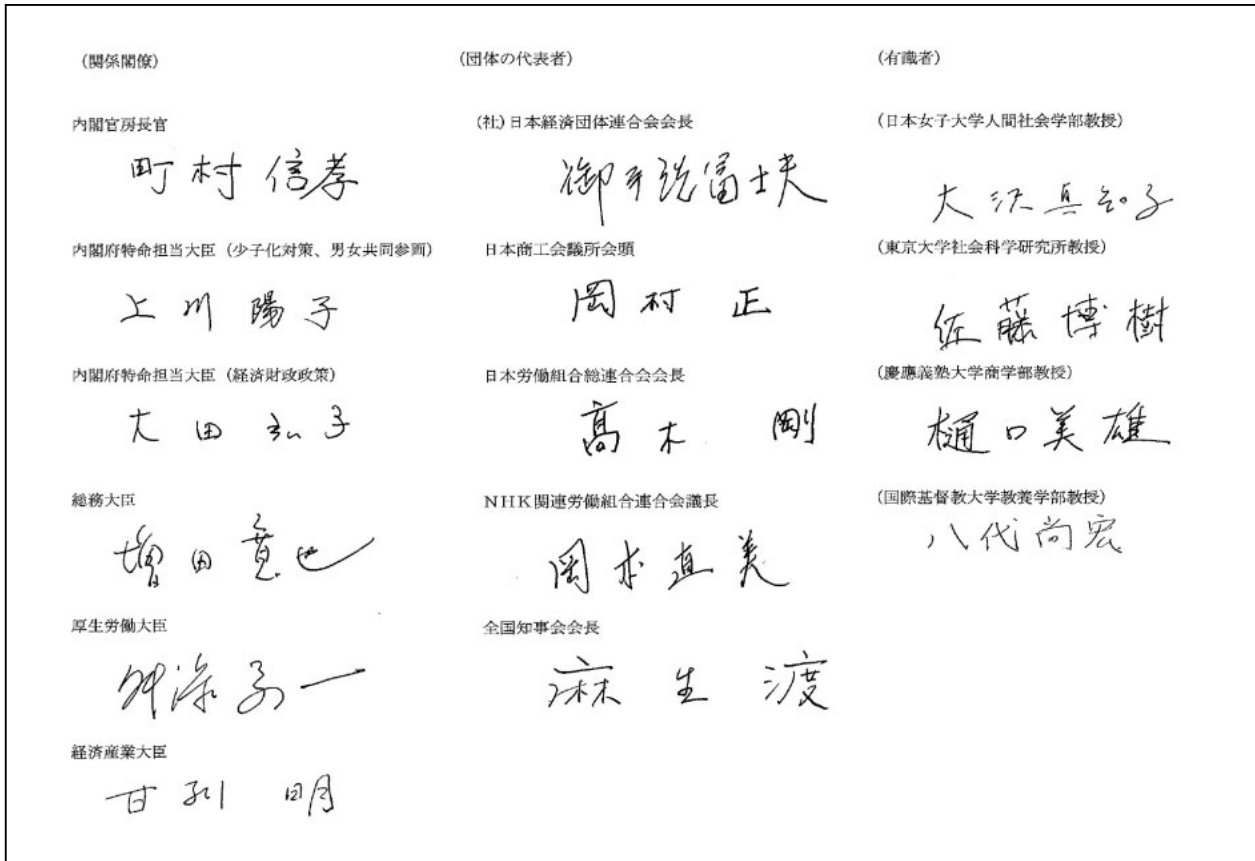 (関係閣僚)
内閣官房長官
町村信孝
内閣府特命担当大臣（少子化対策、男女共同参画）
上川陽子
内閣府特命担当大臣（経済財政政策）
大田弘子
総務大臣
増田寛也
厚生労働大臣
舛添要一
経済産業大臣
甘利明
(団体の代表者)
(社)日本経済団体連合会会長
御手洗冨士夫
日本商工会議所会頭
岡村正
日本労働組合総連合会会長
髙木剛
NHK関連労働組合連合会議長
岡本直美
全国知事会会長
麻生渡
(有識者)
(日本女子大学人間社会学部教授)
大沢真知子
(東京大学社会科学研究所教授)
佐藤博樹
(慶應義塾大学商学部教授)
樋口美雄
(国際基督教大学教養学部教授)
八代尚宏